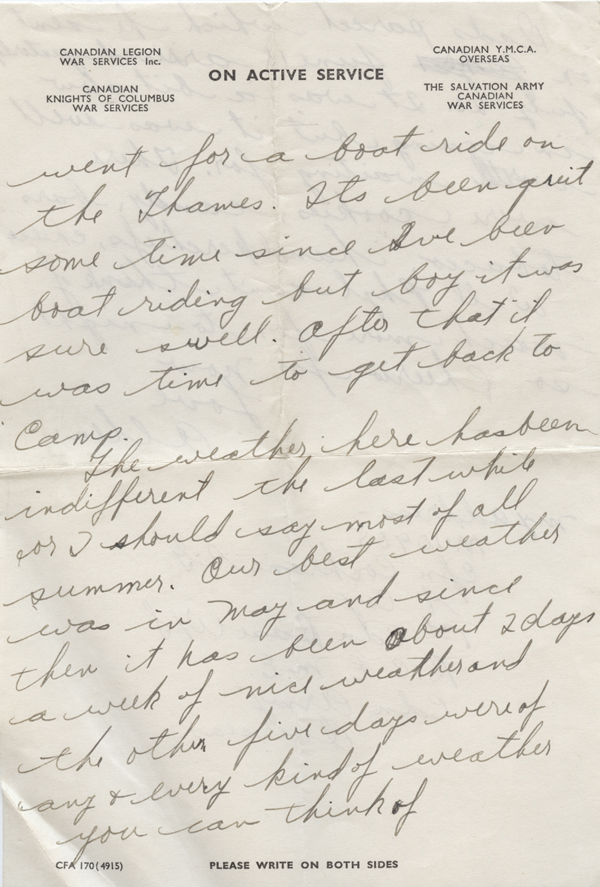 CANADIAN LEGION
WAR SERVICES Inc.
CANADIAN
KNIGHTS OF COLUMBUS
WAR SERVICES
ON ACTIVE SERVICE
CANADIAN Y.M.C.A.
OVERSEAS
THE SALVATION ARMY
CANADIAN
WAR SERVICES
went for a boat ride on
the Thames. Its been quit
some time since Ive been
boat riding but boy it was
sure swell. After that it
was time to get back to
Camp.
The weather here has been
indifferent the last while
or I should say most of all
summer. Our best weather
was in May and since
then it has been about 2 days
a week of nice weather and
the other five days were of
any & every kind of weather
you can think of
CFA 170 (4915)
PLEASE WRITE ON BOTH SIDES